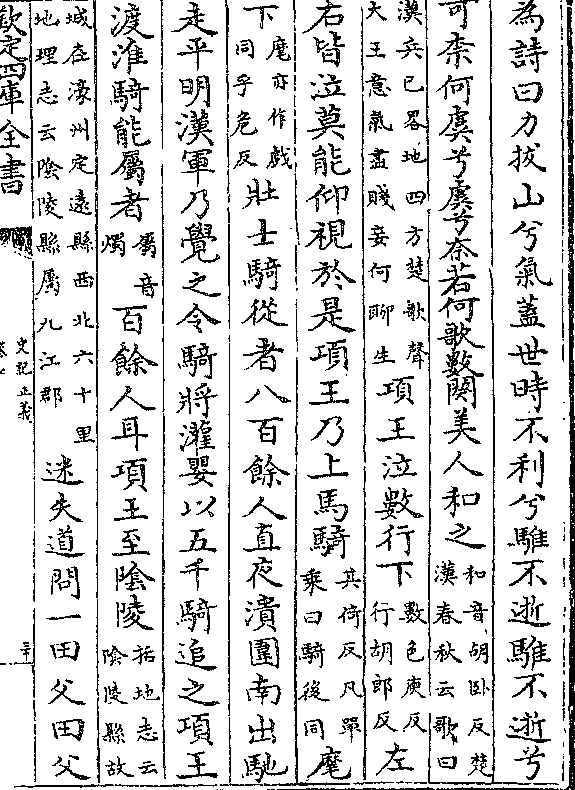 為詩曰力拔山兮氣蓋世時不利兮騅不逝騅不逝兮
可柰何虞兮虞兮柰若何歌數闋美人和之和音胡卧反楚漢春秋云歌曰
漢兵已畧地四方楚歌聲大王意氣盡賤妾何聊生項王泣數行下數色庚反行胡郎反左
右皆泣莫能仰視於是項王乃上馬騎其倚反凡單乘曰騎後同麾
下麾亦作戲同乎危反壯士騎從者八百餘人直夜潰圍南出馳
走平明漢軍乃覺之令騎將灌嬰以五千騎追之項王
渡淮騎能屬者屬音燭百餘人耳項王至隂陵括地志云隂陵縣故
城在濠州定遠縣西北六十里地理志云隂陵縣屬九江郡迷失道問一田父田父
欽定四庫全書
史記正義